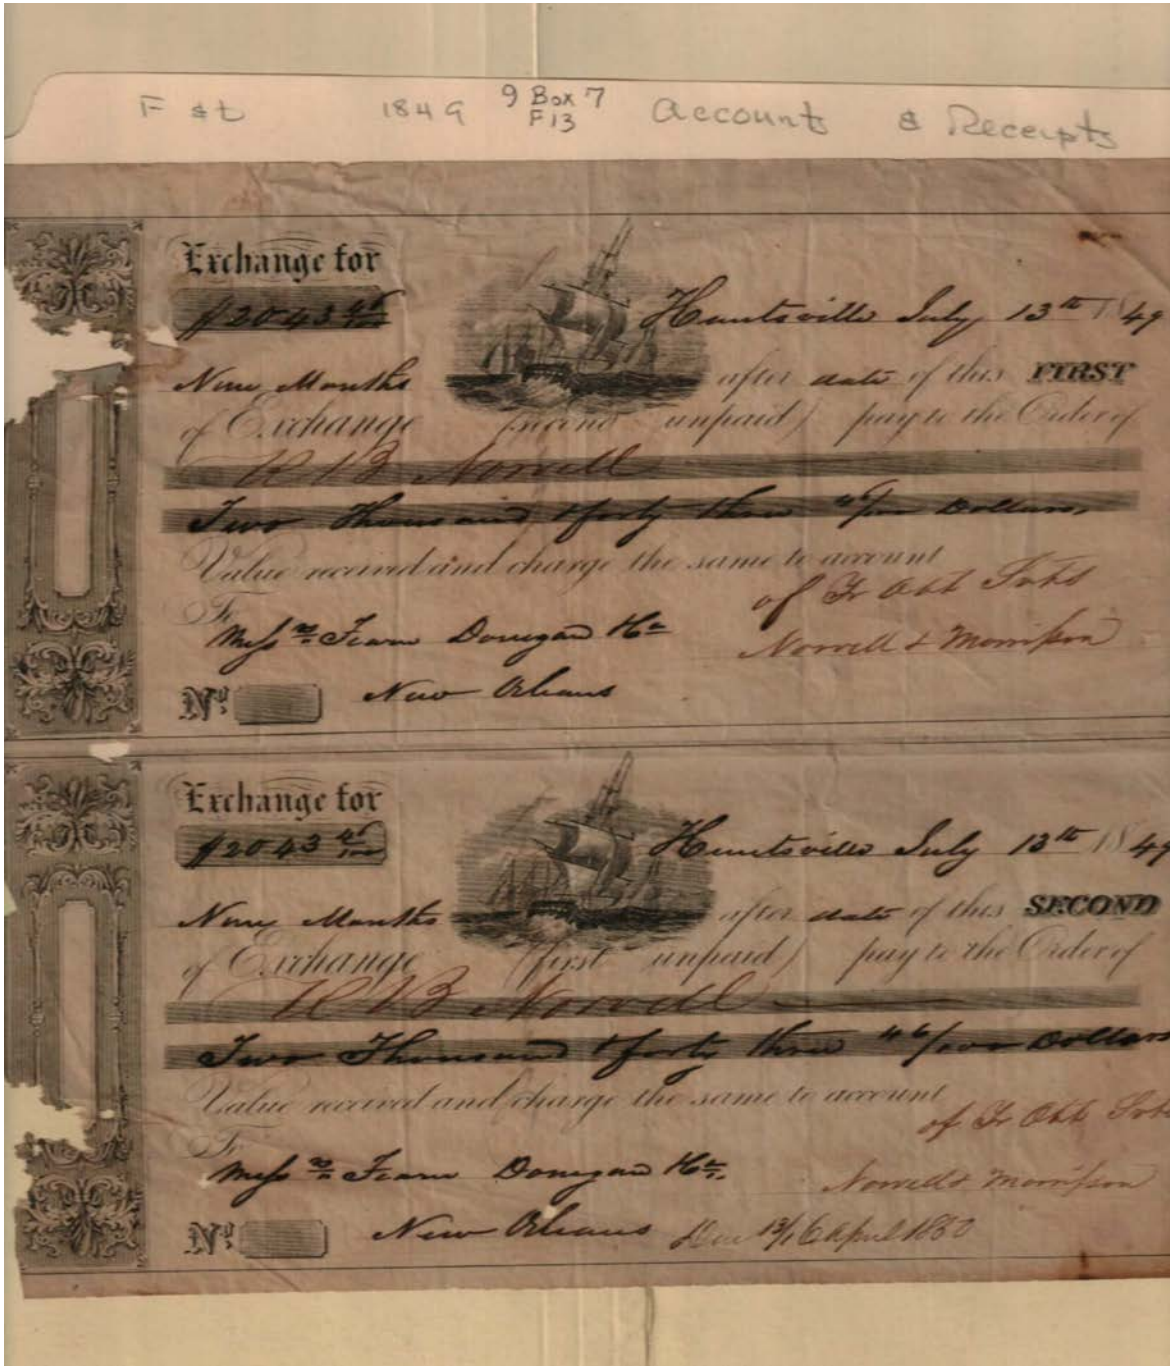 F & t 1849 9 Box 7 F13 Accounts & Receipts
Exchange for
$2043 46/100 Huntsville July 13th 1849
Nine Months after date of this FIRST
of Exchange (second unpaid) pay to the Order of
R B Norvell
Two Thousand & forty three 46/100 Dollars
Value received and charge the same to account
of Yr Obt Svts
To
Messrs Fearn Donegan & Co Norvell & Morrison
No New Orleans
Exchange for
$2043 46/100 Huntsville July 13th 1849
Nine Months after date of this SECOND
of Exchange (first unpaid) pay to the Order of
R B Norvell
Two Thousand & forty three 46/100 Dollars
Value received and charge the same to account
of Yr Obt Svts
To
Messrs Fearn Donegan & Co. Norvell & Morrison
No New Orleans Due 13/16 April 1850